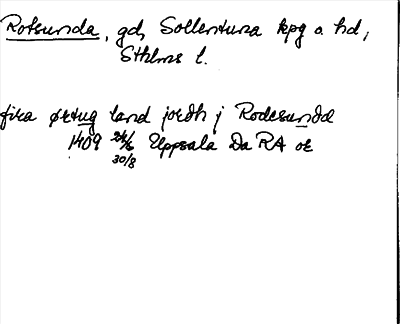 Rotsunda, gd, Sollentuna kpg o. hd,
Sthlms l.
fira ørtug land jordh j Rodesundd
1409 24/6 Uppsala Da RA or
30/8